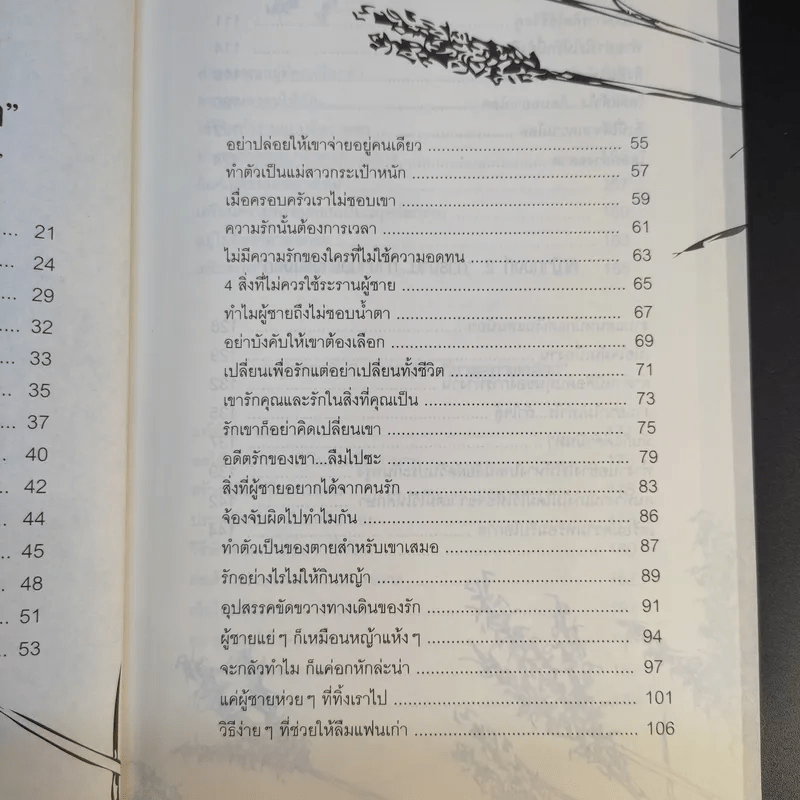 21
24
29
32
33
35
37
40
42
44
45
48
51
53
อย่าปล่อยให้เขาจ่ายอยู่คนเดียว ........................................ 55
ทำตัวเป็นแม่สาวกระเป๋าหนัก ........................................ 57
เมื่อครอบครัวเราไม่ชอบเขา ........................................ 59
ความรักนั้นต้องการเวลา ........................................ 61
ไม่มีความรักของใครที่ไม่ใช้ความอดทน ........................................ 63
4 สิ่งที่ไม่ควรใช้ระรานผู้ชาย ........................................ 65
ทำไมผู้ชายถึงไม่ชอบน้ำตา ........................................ 67
อย่าบังคับให้เขาต้องเลือก ........................................ 69
เปลี่ยนเพื่อรักแต่อย่าเปลี่ยนทั้งชีวิต ........................................ 71
เขารักคุณและรักในสิ่งที่คุณเป็น ........................................ 73
รักเขาก็อย่าคิดเปลี่ยนเขา ........................................ 75
อดีตรักของเขา...ลืมไปซะ ........................................ 79
สิ่งที่ผู้ชายอยากได้จากคนรัก ........................................ 83
จ้องจับผิดไปทำไมกัน ........................................ 86
ทำตัวเป็นของตายสำหรับเขาเสมอ ........................................ 87
รักอย่างไรไม่ให้กินหญ้า ........................................ 89
อุปสรรคขัดขวางทางเดินของรัก ........................................ 91
ผู้ชายแย่ๆ ก็เหมือนหญ้าแห้งๆ ........................................ 94
จะกลัวทำไม ก็แค่อกหักล่ะน่า ........................................ 97
แค่ผู้ชายห่วยๆ ที่ทิ้งเราไป ........................................ 101
วิธีง่ายๆ ที่ช่วยให้ลืมแฟนเก่า ........................................ 106